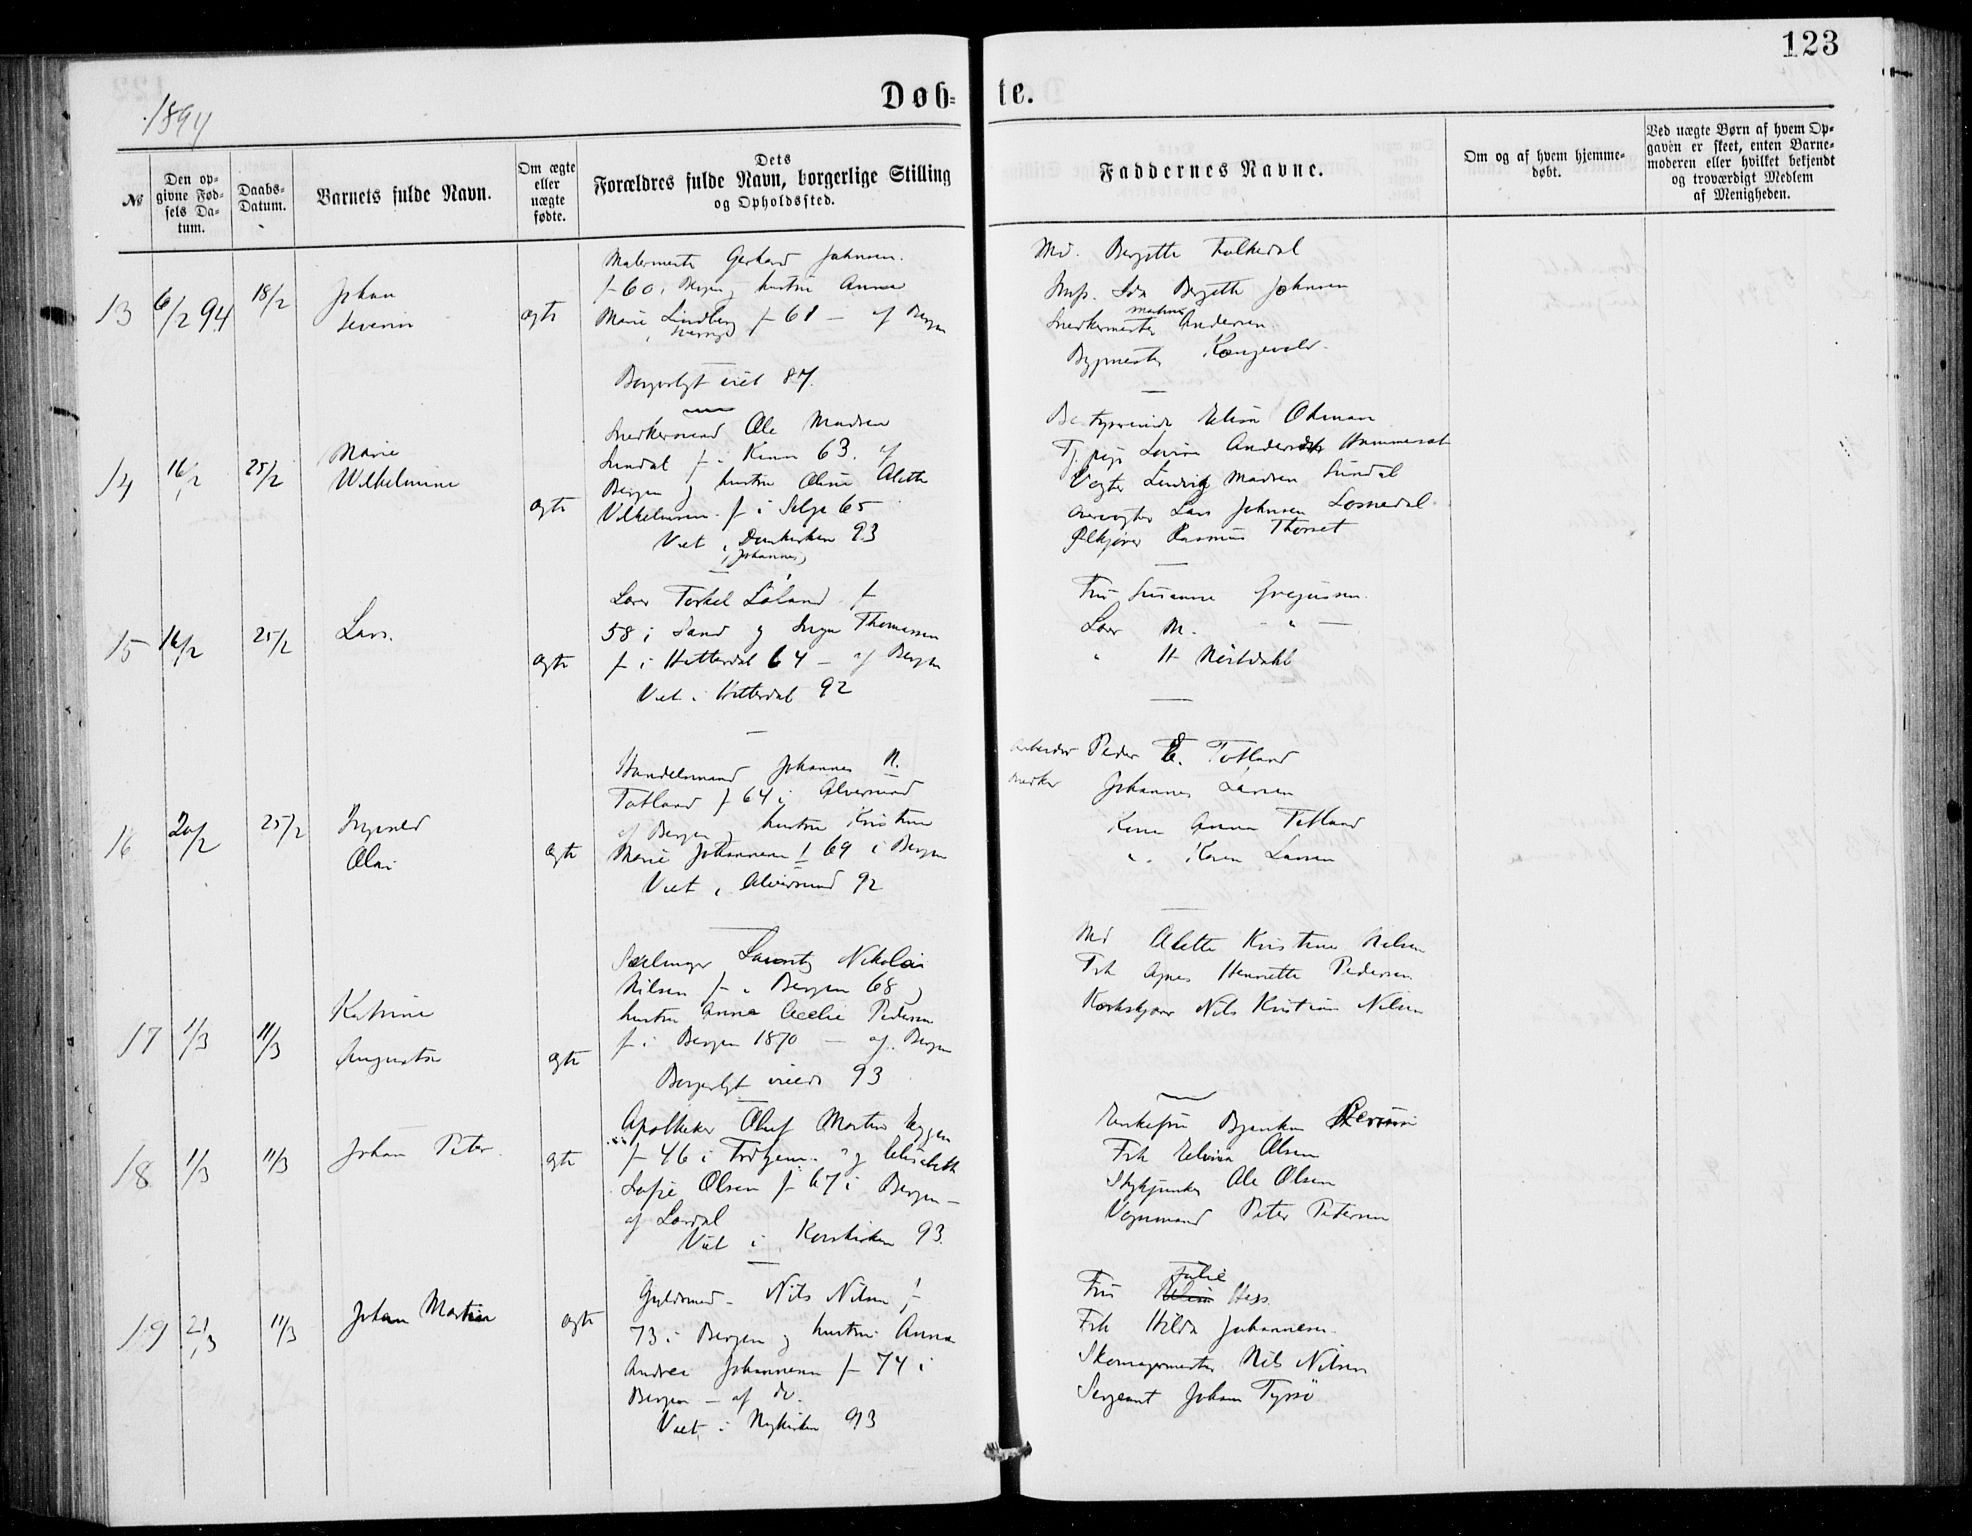 123
Døb= te.
1894
№
Den op-
givne Fød-
sels Da-
tum.
Daabs-
Datum.
Barnets fulde Navn.
Om ægte
eller
uægte
fødte.
Dets
Forældres fulde Navn, borgerlige Stilling
og Opholdssted.
Faddernes Navne.
Om og af hvem hjemme-
døbt.
Ved uægte Børn af hvem Op-
gaven er skeet, enten Barne-
moderen eller hvilket bekjendt
og troværdigt Medlem
af Menigheden.
13
6/2 94
18/2
Johan
Severin
ægte
Malermester Gerhard Johnsen
f 60 i Bergen og hustru Anna
Marie Lindberg f 61 - af Bergen
i Sverige
Borgerligt viet 87.
Md. Bergitte Falkedal
Jmfr. Ida Bergitte Johnsen
Snedkermester Andersen
Bygmester Kongevold
14
16/2
25/2
Marie
Wilhelmine
ægte
Snedkersvend Ole Madsen
Sundal f i Kinn 63. af
Bergen og hustru Oline Alette
Vilhelmsen f i Selje 65
Viet i Domkirken 93
(Johannes)
Bestyrerinde Elisa Ohman
Tj. pige Lovise Andersdtr Hammerset
Vogter Ludvig Madsen Sundal
Overvogter Lars Johnsen Losnedal
Ølkjører Rasmus Thorset
15
16/2
25/2
Lars.
ægte
Lærer Torkel Løland f
58 i Sand og Inga Thomassen
f i Hitterdal 64 - af Bergen
Viet i Hitterdal 92
Fru Susanne Gregussen
Lærer M. " -
" H Meltdahl
16
20/2
25/2
Ingvald
Olai
ægte
Handelsmand Johannes N.
Totland f 64 i Alversund
af Bergen og hustru Kristine
Marie Johannesen f 69 i Bergen
Viet i Alversund 92
Arbeider Peder E. Totland
Snedker Johannes Larsen
Kone Anna Totland
" Karen Larsen
17
1/3
11/3
Katrine
Augusta
ægte
Sælinger Lauritz Nikolai
Nilsen f i Bergen 68 og
hustru Anna Cecelie Pedersen
f i Bergen 1870 - af Bergen
Borgerligt viede 93
Md Alette Kristine Nilsen
Frk Agnes Henriette Pedersen
Nils Kristian Nilsen
18
1/3
11/3
Johan Peter
ægte
Apotheker Oluf Martin Eggen
f 46 i Trdhjem og Elisabeth
Sofie Olsen f 67 i Bergen -
af Lærdal
Viet i Korskirken 93
Enkefru
Frk Elvina Olsen
Stykjunker Ole Olsen
Vognmand Peter Pedersen
19
2/3
11/3
Johan Martin
ægte
Guldsmed Nils Nilsen f
73 i Bergen og hustru Anna
Andrea Johannesen f 74 i
Bergen - af do.
Viet i Nykirken 93
Julie
Fru Hess
Frk Hilda Johannesen
Skomagermester Nils Nilsen
Sergeant Johan Tyssø